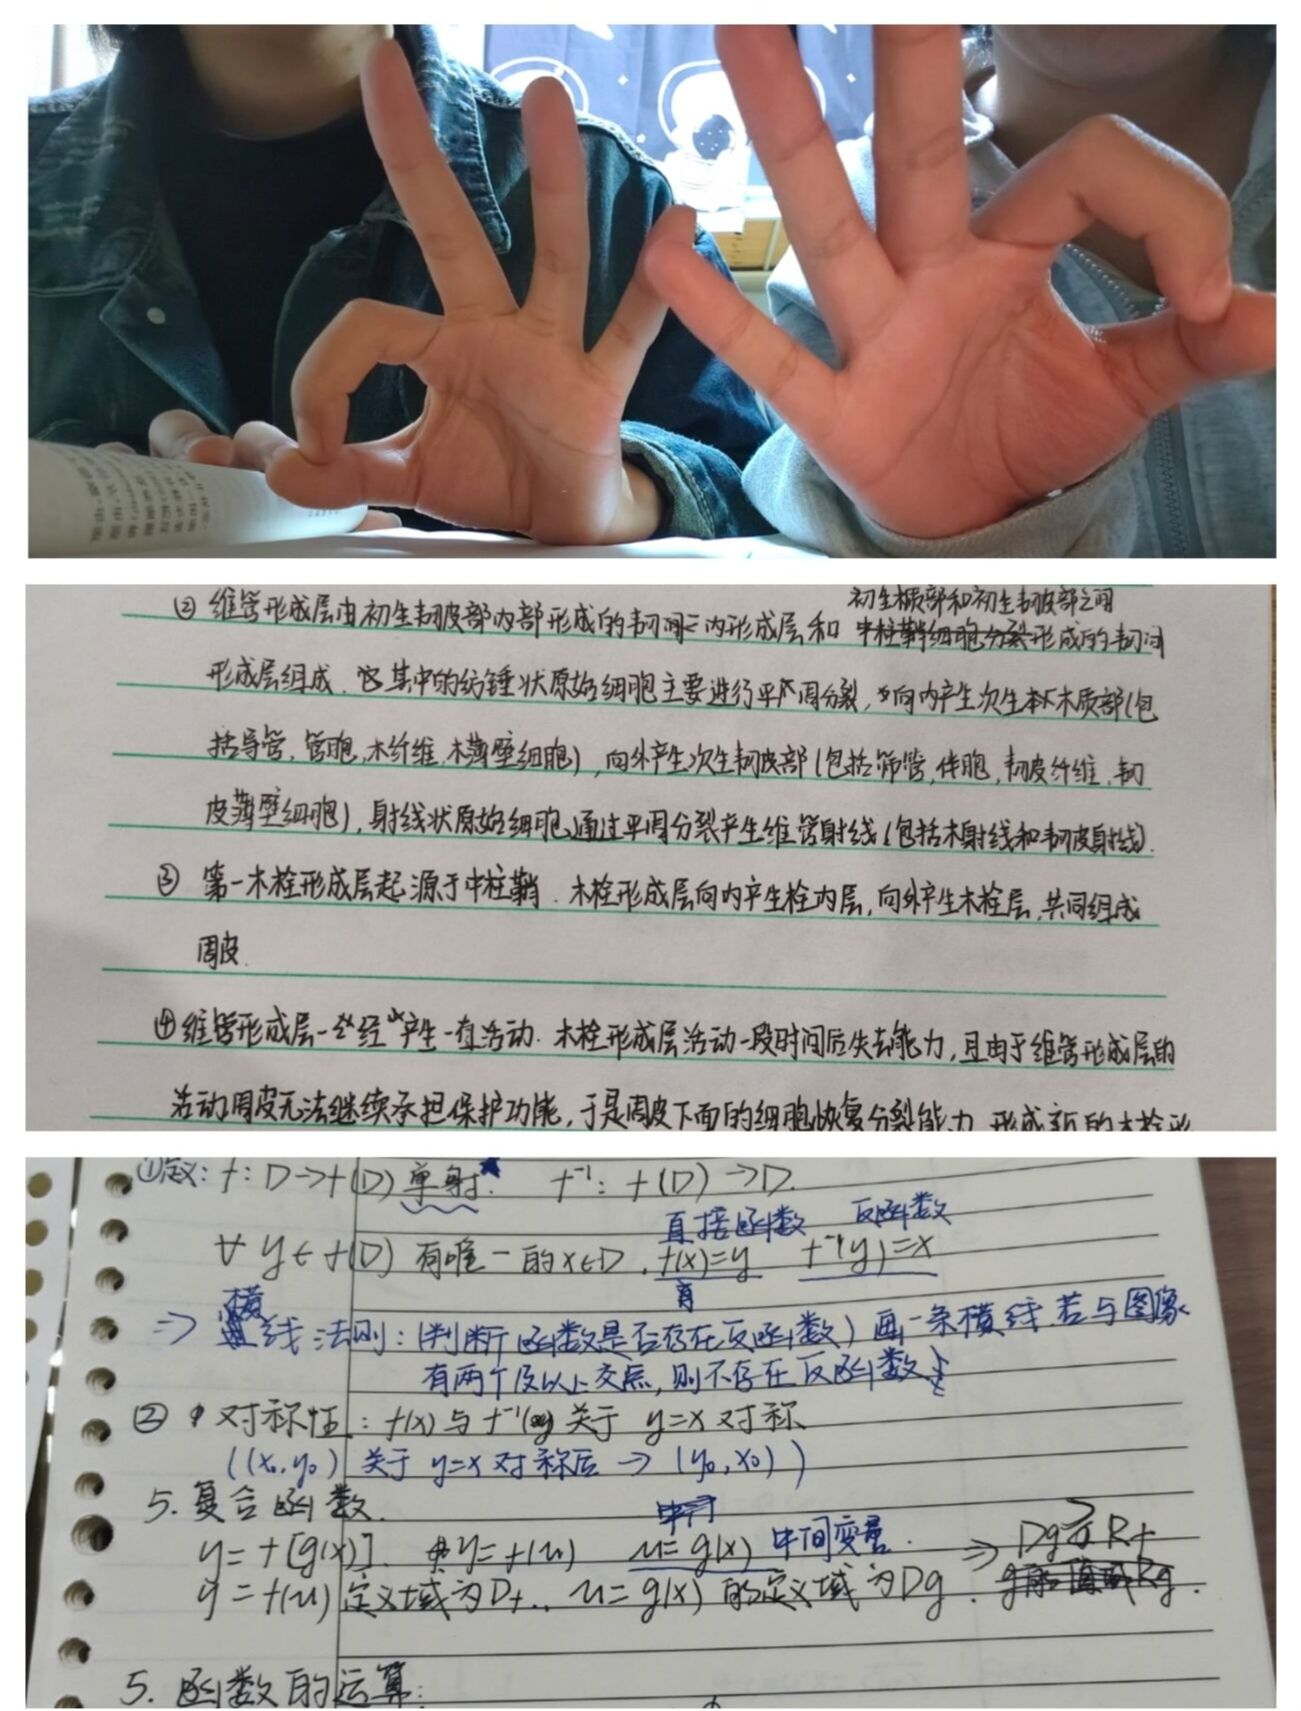 初生木质部和初生韧皮部之间
② 维管形成层由初生韧皮部内部形成的韧 内形成层和 中柱鞘细胞分裂形成的韧间
形成层组成. 其中的纺锤状原始细胞主要进行平周分裂, 向内产生次生木质部(包
括导管, 管胞, 木纤维, 木薄壁细胞), 向外产生次生韧皮部(包括筛管, 伴胞, 韧皮纤维, 韧
皮薄壁细胞), 射线状原始细胞通过平周分裂产生维管射线(包括木射线和韧皮射线).
③ 第一木栓形成层起源于中柱鞘. 木栓形成层向内产生栓内层, 向外产生木栓层, 共同组成
周皮.
④ 维管形成层一经产生一直活动. 木栓形成层活动一段时间后失去能力, 且由于维管形成层的
活动周皮无法继续承担保护功能, 于是周皮下面的细胞恢复分裂能力 形成新的木栓形
①定义: f: D→f(D) 单射. f⁻¹: f(D)→D.
直接函数 反函数
∀ y∈f(D) 有唯一的x∈D, f(x)=y f⁻¹(y)=x
横
⇒ 线法则: (判断函数是否存在反函数) 画一条横线, 若与图像
有两个及以上交点, 则不存在反函数
② 对称性: f(x)与f⁻¹(x)关于 y=x 对称
((x₀,y₀) 关于 y=x 对称后 → (y₀,x₀))
5. 复合函数.
y=f[g(x)]. y=f(u) u=g(x) 中间变量. ⇒
y=f(u) 定义域为Df.. u=g(x) 的定义域为Dg.
5. 函数的运算: